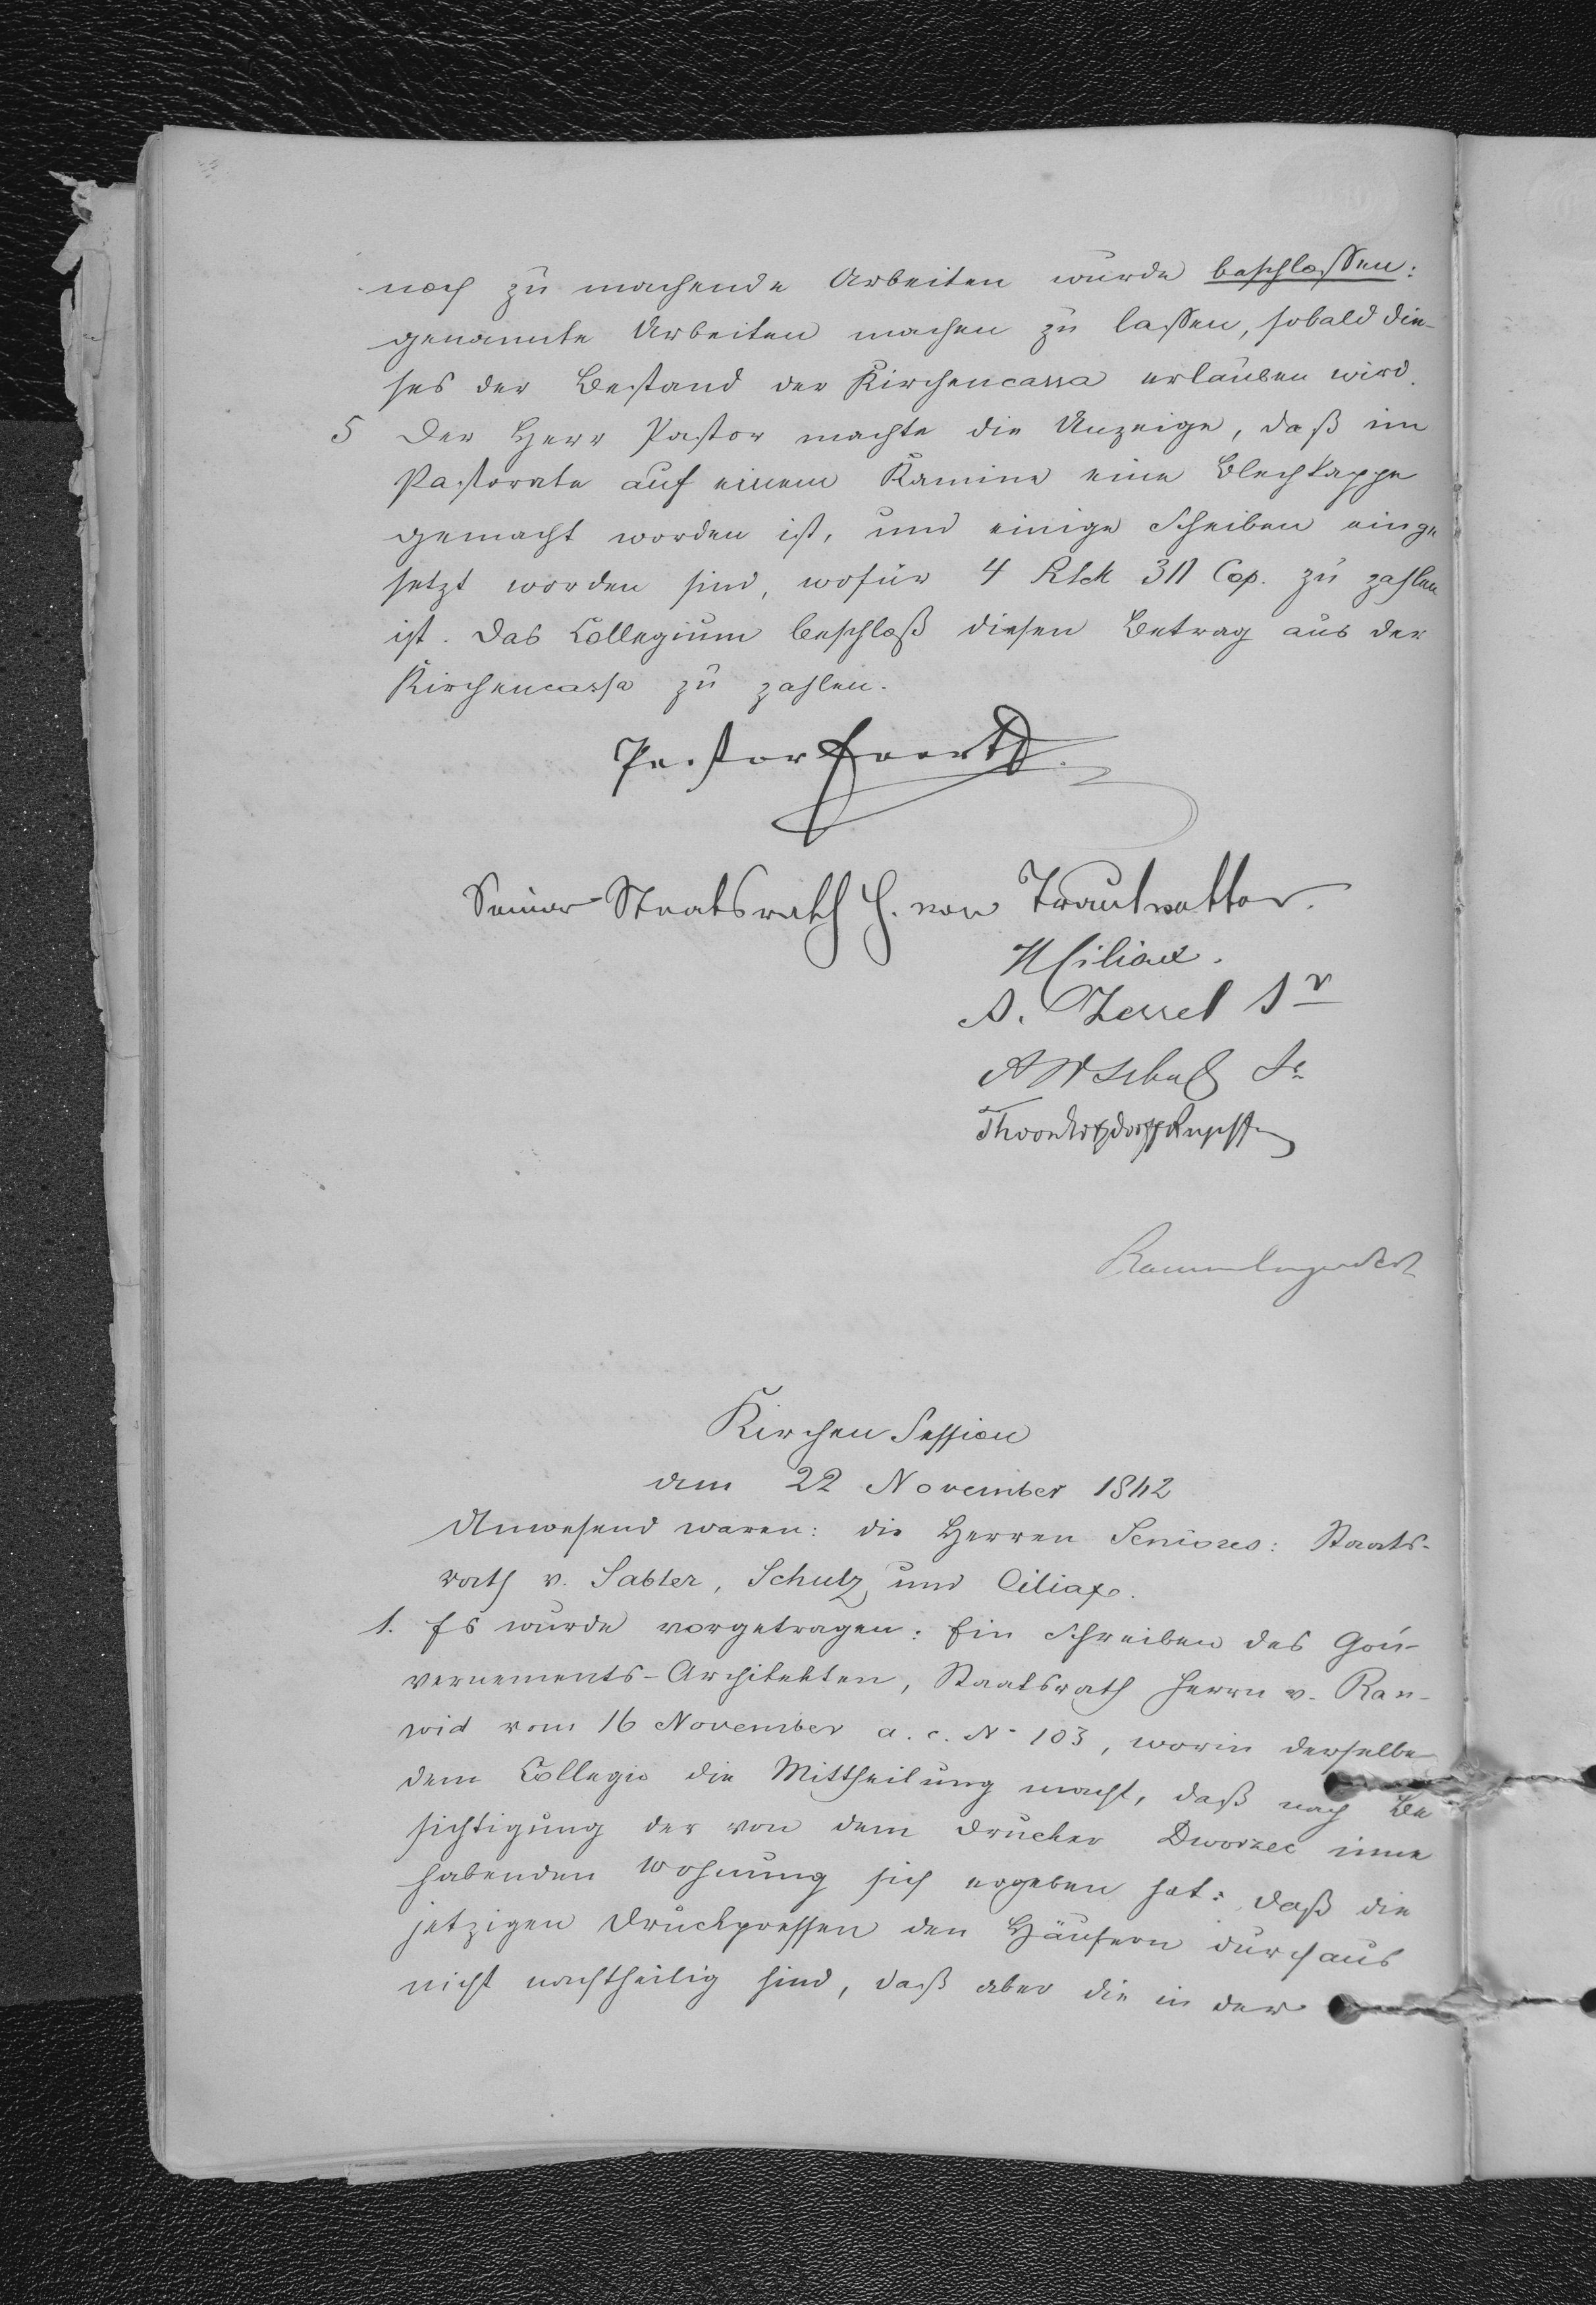 noch zu machende Arbeiten wurde beschlossen:
genannte Arbeiten machen zu lassen, sobald die-
ses der Bestand der Kirchencassa erlauben wird.
5 Der Herr Pastor machte die Anzeige, daß im
Pastorate auf einem Kamine eine Blechkappe
gemacht worden ist, und einige Scheiben einge
setzt worden sind, wofür 4 Rbl 311 Cop. zu zahlen
ist. Das Collegium beschloß diesen Betrag aus der
Kirchencassa zu zahlen.
Pastor Everth.
Senior Staatsrath H. von Trautvetter.
H Ciliax.
A. Zessel Sr
A W Schulz Sr
Kirchen Session
am 22 November 1842
Anwesend waren: die Herren Seniores: Staats-
rath v. Sabler, Schulz und Ciliax.
1. Es wurde vorgetragen: Ein Schreiben des Gou-
vernements-Architekten, Staatsrath Herrn v. Ran-
wid vom 16 November a. c. N- 103, worin derselbe
dem Collegio die Mittheilung macht, daß nach Be
sichtigung der von dem Drucker Dworzec inne
habenden Wohnung sich ergeben hat: daß die
jetzigen Druckpressen den Häusern durchaus
nicht nachtheilig sind, daß aber die in der